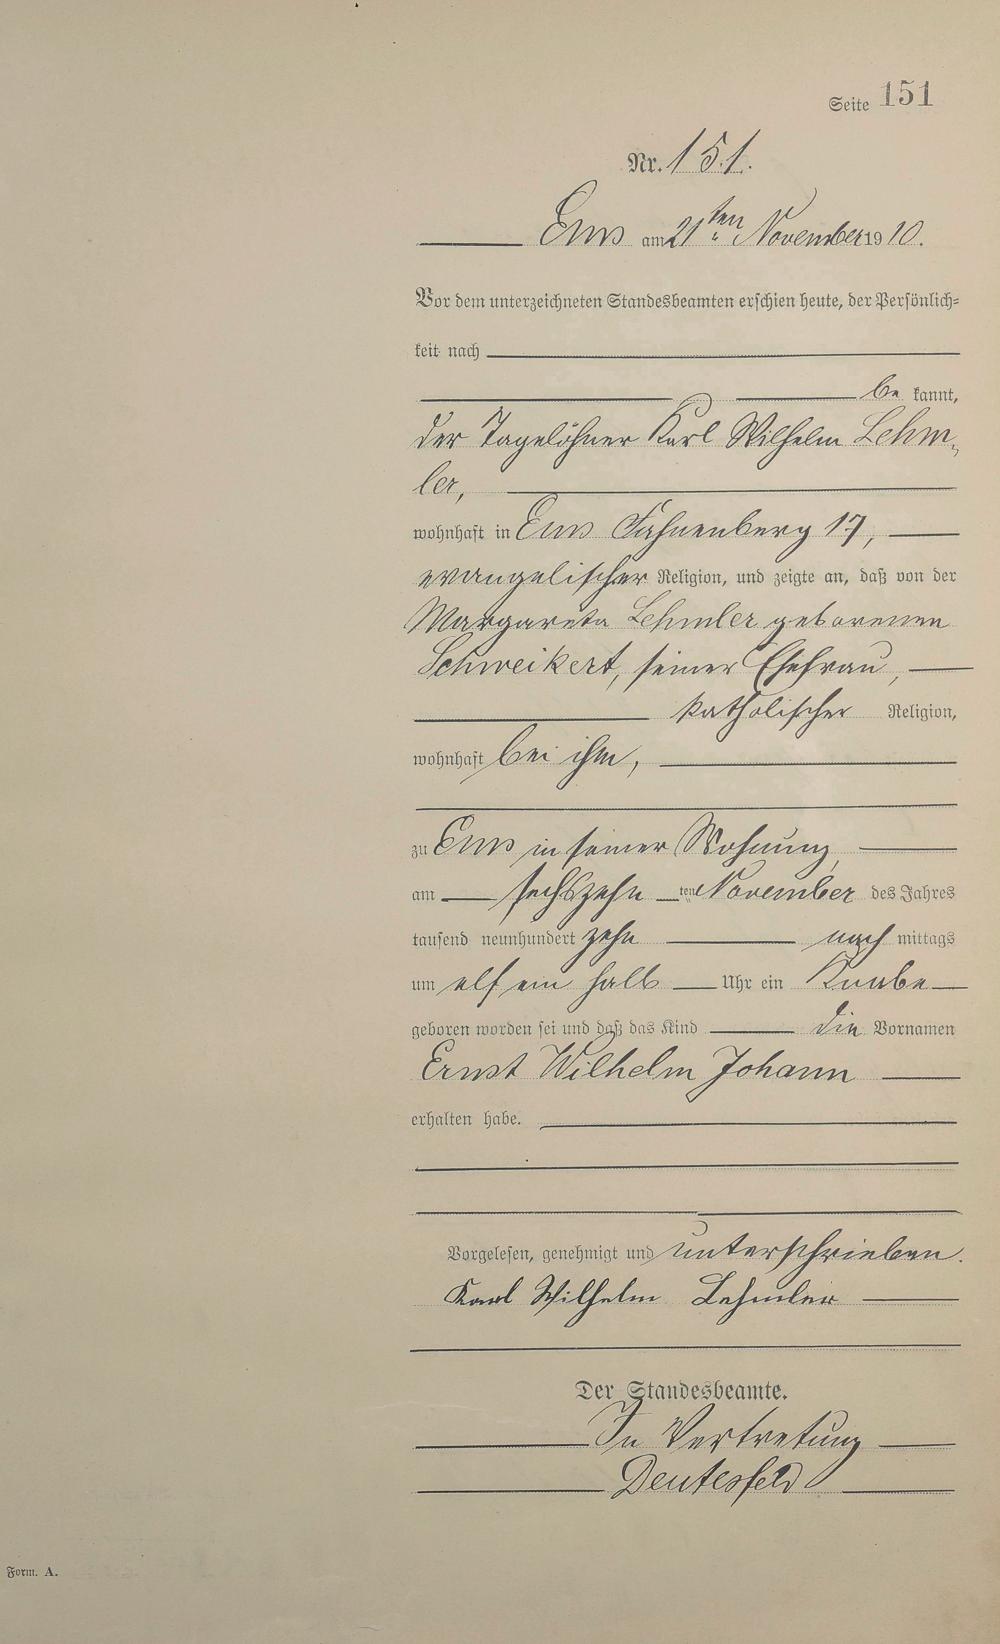 Seite 151
Nr. 151.
Ems am 21ten November 1910.
Vor dem unterzeichneten Standesbeamten erschien heute, der Persönlich=
keit nach
be kannt,
der Tagelöhner Karl Wilhelm Lehm=
ler,
wohnhaft in Ems Fahnenberg 17,
evangelischer Religion, und zeigte an, daß von der
Margareta Lehmler geborenen
Schweikert, seiner Ehefrau,
katholischer Religion,
wohnhaft bei ihm,
zu Ems in seiner Wohnung,
am sechszehn ten November des Jahres
tausend neunhundert zehn nach mittags
um elf ein halb Uhr ein Knabe
geboren worden sei und daß das Kind die Vornamen
Ernst Wilhelm Johann
erhalten habe.
Vorgelesen, genehmigt und unterschrieben.
Karl Wilhelm Lehmler
Der Standesbeamte.
In Vertretung
Deutesfeld
Form. A.